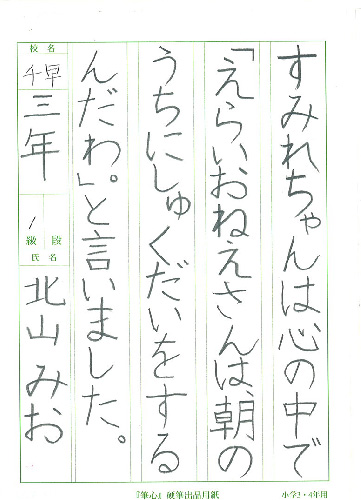 すみれちゃんは心の中で
「えらいおねえさんは、朝の
うちにしゅくだいをする
んだわ。」と言いました。
校名
千早
三年
級段
氏名
北山みお
『筆心』硬筆出品用紙
小学3・4年用